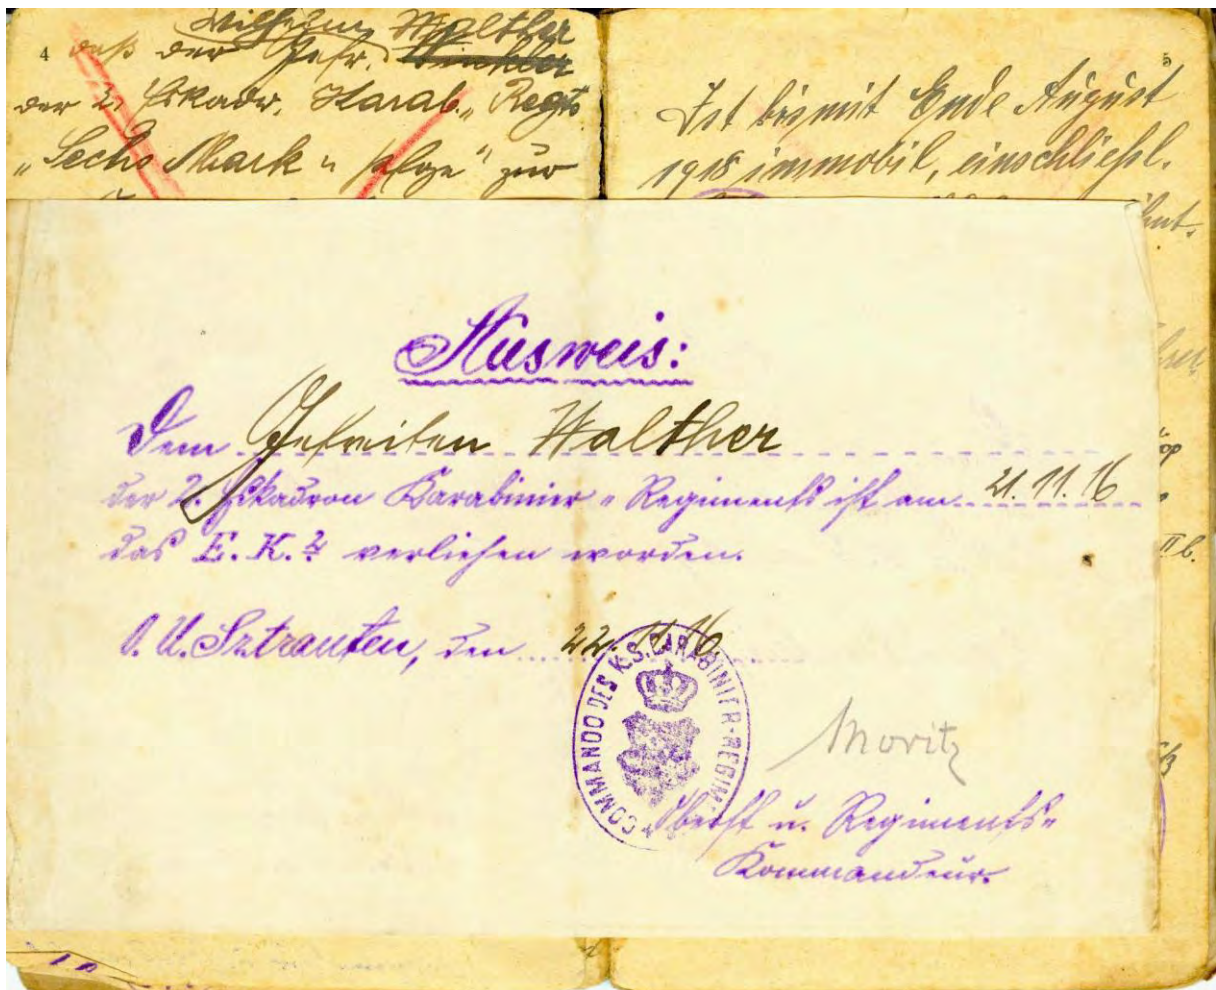 4
Wilhelm Walther
daß der Gefr. Winkler
der 2. Eskadr. Karab. Regts
"Sechs Mark u. Pflege" zur
5
Ist bis mit Ende August
1918 immobil, einschließl.
Ausweis:
Dem Gefreiten Walther
der 2. Eskadron Karabinier-Regiments ist am 21.11.16
das E.K. 2 verliehen worden.
O.U. Sztrauten, den 22.11.16.
COMMANDO DES K.S. CARABINIER-REGIM
Moritz
Oberst u. Regiments-
Kommandeur.
II b.